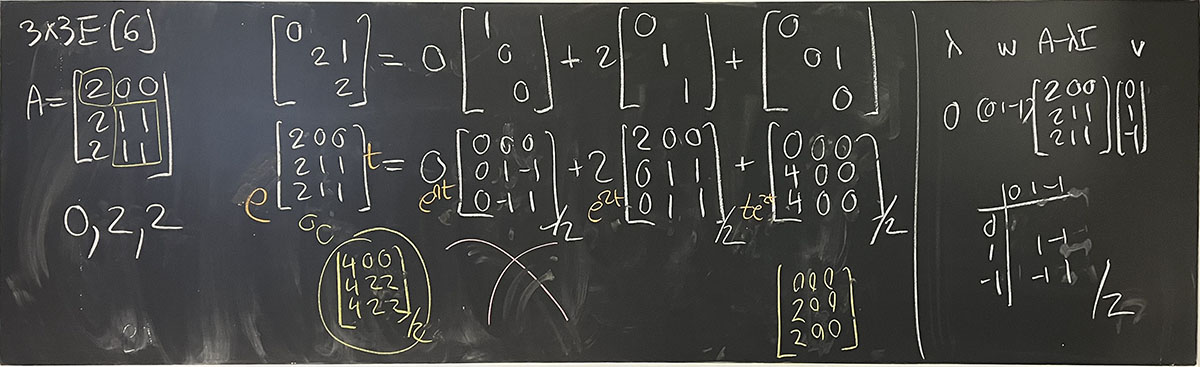 3×3E[6]
A = [2 0 0
2 1 1
2 1 1]
0, 2, 2
[0
2 1
2] = 0 [1
0
0] + 2 [0
1
1] + [0
0 1
0]
e [2 0 0
2 1 1
2 1 1] t = 0 e^0t [0 0 0
0 1 -1
0 -1 1]/2 + 2 e^2t [2 0 0
0 1 1
0 1 1]/2 + te^2t [0 0 0
4 0 0
4 0 0]/2
[4 0 0
4 2 2
4 2 2]/2
[0 0 0
2 0 0
2 0 0]
λ w A-λI v
0 (0 1 -1) [2 0 0
2 1 1
2 1 1] [0
1
-1]
0 1 -1
0
1 1 -1
-1 -1 1 /2